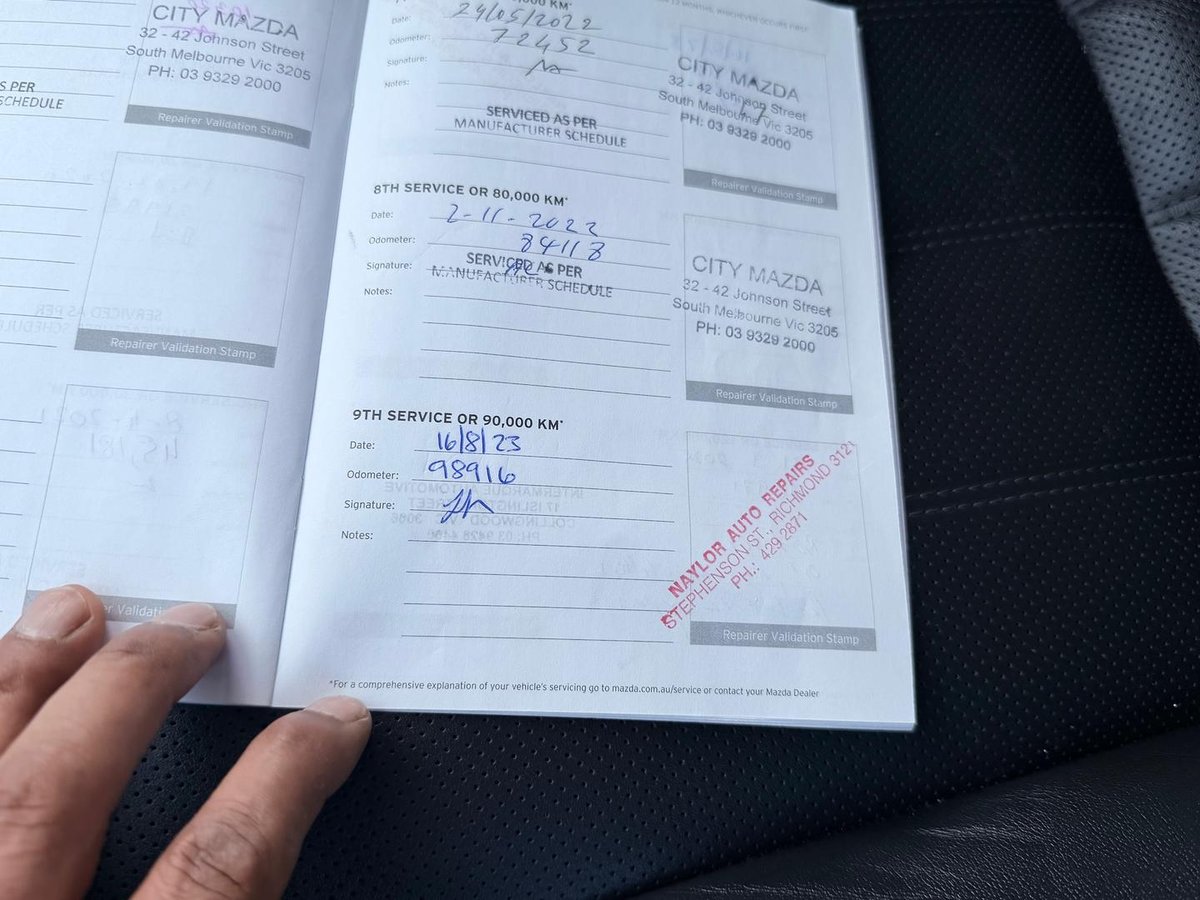 CITY MAZDA
32 - 42 Johnson Street
South Melbourne Vic 3205
PH: 03 9329 2000
S PER
SCHEDULE
Repairer Validation Stamp
Repairer Validation Stamp
er Validati
12 MONTHS, WHICHEVER OCCURS FIRST
Date: 24/05/2022
Odometer: 72452
Signature:
Notes:
SERVICED AS PER
MANUFACTURER SCHEDULE
CITY MAZDA
32 - 42 Johnson Street
South Melbourne Vic 3205
PH: 03 9329 2000
Repairer Validation Stamp
8TH SERVICE OR 80,000 KM*
Date: 2-11-2022
Odometer: 84118
Signature:
SERVICED AS PER
MANUFACTURER SCHEDULE
Notes:
CITY MAZDA
32 - 42 Johnson Street
South Melbourne Vic 3205
PH: 03 9329 2000
Repairer Validation Stamp
9TH SERVICE OR 90,000 KM*
Date: 16/8/23
Odometer: 98916
Signature:
Notes:
NAYLOR AUTO REPAIRS
STEPHENSON ST., RICHMOND 3121
PH.: 429 2871
Repairer Validation Stamp
*For a comprehensive explanation of your vehicle's servicing go to mazda.com.au/service or contact your Mazda Dealer